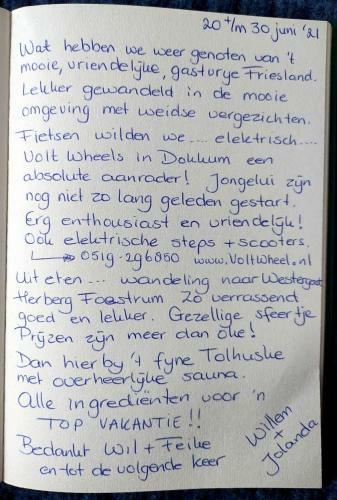 20 t/m 30 juni '21
Wat hebben we weer genoten van 't
mooie, vriendelijke, gastvrije Friesland.
Lekker gewandeld in de mooie
omgeving met weidse vergezichten.
Fietsen wilden we .... elektrisch ....
Volt Wheels in Dokkum een
absolute aanrader! Jongelui zijn
nog niet zo lang geleden gestart.
Erg enthousiast en vriendelijk!
Ook elektrische steps + scooters.
→ 0519-296850 www.VoltWheel.nl
Uit eten ... wandeling naar Westergeest
Herberg Foestrum Zo verrassend
goed en lekker. Gezellige sfeertje
Prijzen zijn meer dan oke!
Dan hier by 't fyne Tolhuske
met overheerlijke sauna.
Alle ingrediënten voor 'n
TOP VAKANTIE!!
Bedankt Wil + Feike
en tot de volgende keer
Willem
+
Jolanda